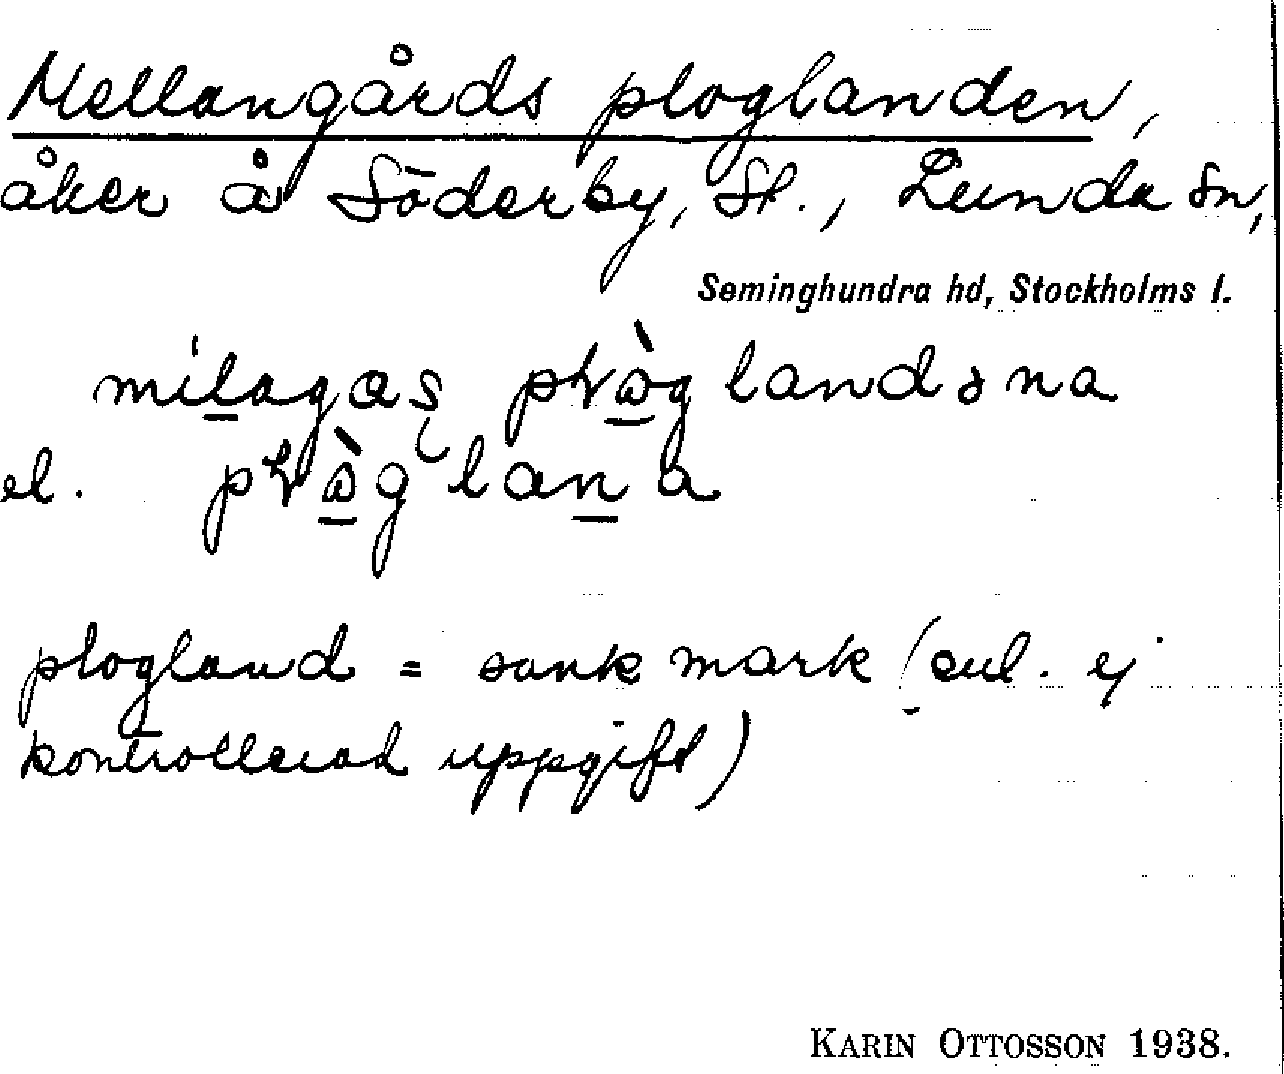 Mellangårds ploglanden,
åker å Söderby, St., Lunda sn,
Seminghundra hd, Stockholms l.
el.
plogland = sank mark (enl. ej
kontrollerad uppgift)
KARIN OTTOSSON 1938.